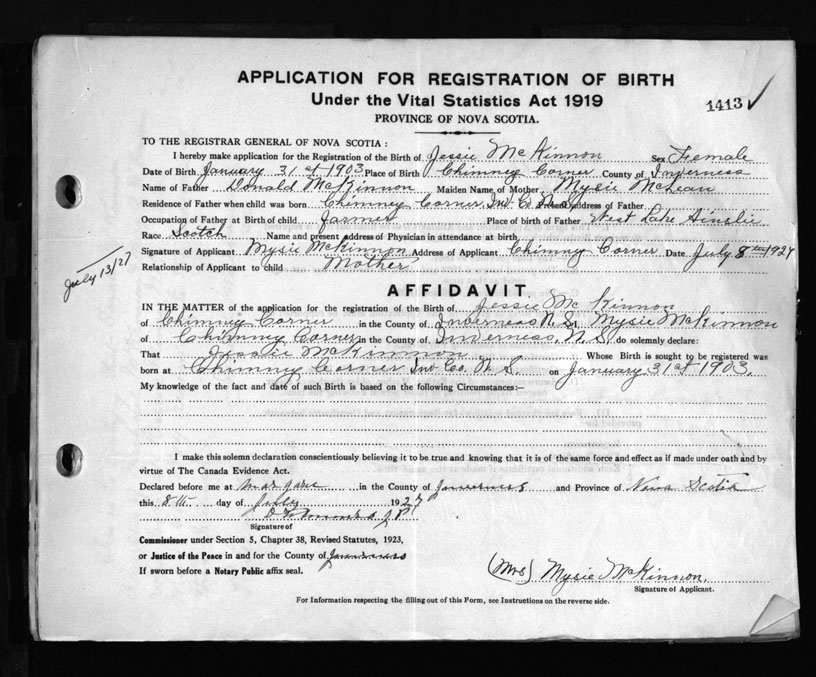 APPLICATION FOR REGISTRATION OF BIRTH
Under the Vital Statistics Act 1919
1413 ✓
PROVINCE OF NOVA SCOTIA.
TO THE REGISTRAR GENERAL OF NOVA SCOTIA :
I hereby make application for the Registration of the Birth of Jessie McKinnon Sex Female
Date of Birth January 31st 1903 Place of Birth Chimney Corner County of Inverness
Name of Father Donald McKinnon Maiden Name of Mother Mysie McLean
Residence of Father when child was born Chimney Corner, Inv. Co. N.S. Present address of Father
Occupation of Father at Birth of child Farmer Place of Birth of Father West Lake Ainslie
Race Scotch Name and present address of Physician in attendance at birth
Signature of Applicant Mysie McKinnon Address of Applicant Chimney Corner Date July 8th 1927
Relationship of Applicant to child Mother
July 13/27
AFFIDAVIT.
IN THE MATTER of the application for the registration of the Birth of Jessie McKinnon
of Chimney Corner in the County of Inverness N.S. I Mysie McKinnon
of Chimney Corner in the County of Inverness, N.S. do solemnly declare:
That Jessie McKinnon Whose Birth is sought to be registered was
born at Chimney Corner Inv. Co. N.S. on January 31st 1903.
My knowledge of the fact and date of such Birth is based on the following Circumstances:—
I make this solemn declaration conscientiously believing it to be true and knowing that it is of the same force and effect as if made under oath and by
virtue of The Canada Evidence Act.
Declared before me at Margaree in the County of Inverness and Province of Nova Scotia
this 8th day of July 1927
J P
Signature of
Commissioner under Section 5, Chapter 38, Revised Statutes, 1923,
or Justice of the Peace in and for the County of Inverness
If sworn before a Notary Public affix seal.
(Mrs) Mysie McKinnon.
Signature of Applicant.
For Information respecting the filling out of this Form, see Instructions on the reverse side.